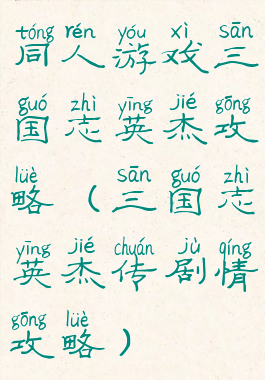 tóng rén yóu xì sān
同人游戏三
guó zhì yīng jié gōng
国志英杰攻
lüè sān guó zhì
略（三国志
yīng jié chuán jù qíng
英杰传剧情
gōng lüè
攻略）